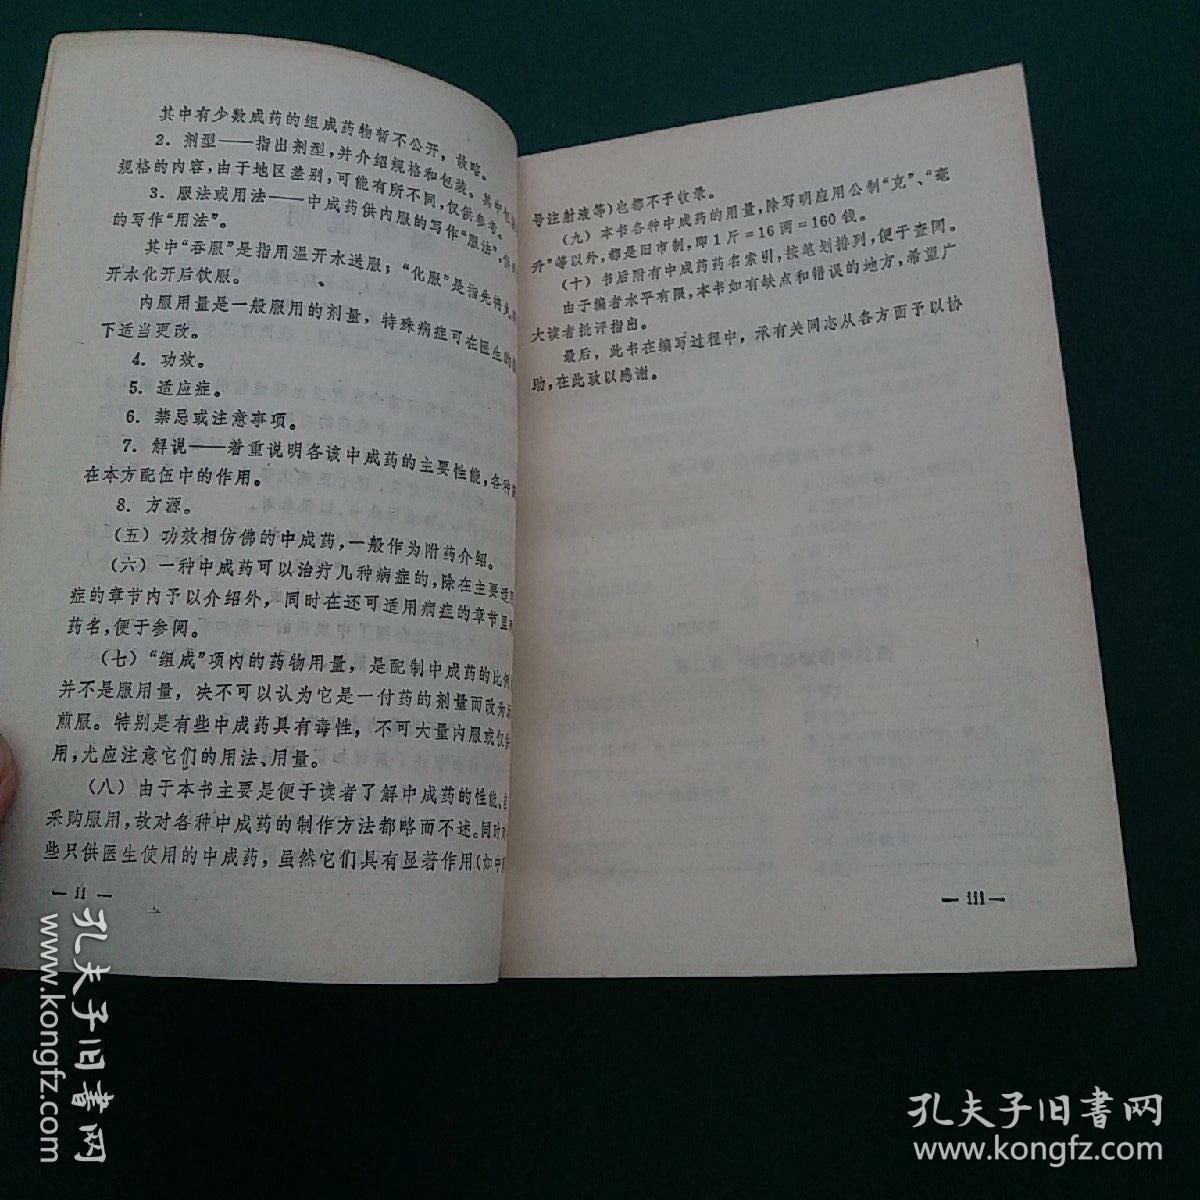 其中有少数成药的组成药物暂不公开，故略。
2. 剂型——指出剂型，并介绍规格和包装。其中
规格的内容，由于地区差别，可能有所不同，仅供参考。
3. 服法或用法——中成药供内服的写作“服法”，
的写作“用法”。
其中“吞服”是指用温开水送服；“化服”是指先将丸
开水化开后饮服。
内服用量是一般服用的剂量，特殊病症可在医生的
下适当更改。
4. 功效。
5. 适应症。
6. 禁忌或注意事项。
7. 解说——着重说明各该中成药的主要性能，各种
在本方配伍中的作用。
8. 方源。
（五）功效相仿佛的中成药，一般作为附药介绍。
（六）一种中成药可以治疗几种病症的，除在主要适
症的章节内予以介绍外，同时在还可适用病症的章节里
药名，便于参阅。
（七）“组成”项内的药物用量，是配制中成药的比例
并不是服用量，决不可以认为它是一付药的剂量而改为
煎服。特别是有些中成药具有毒性，不可大量内服或仅供
用，尤应注意它们的用法、用量。
（八）由于本书主要是便于读者了解中成药的性能、
采购服用，故对各种中成药的制作方法都略而不述。同时
些只供医生使用的中成药，虽然它们具有显著作用（如中
— ii —
号注射液等）也都不予收录。
（九）本书各种中成药的用量，除写明应用公制“克”、“毫
升”等以外，都是旧市制，即1斤＝16两＝160钱。
（十）书后附有中成药药名索引，按笔划排列，便于查阅。
由于编者水平有限，本书如有缺点和错误的地方，希望广
大读者批评指出。
最后，此书在编写过程中，承有关同志从各方面予以协
助，在此致以感谢。
— iii —
孔夫子旧书网
www.kongfz.com
孔夫子旧书网
www.kongfz.com